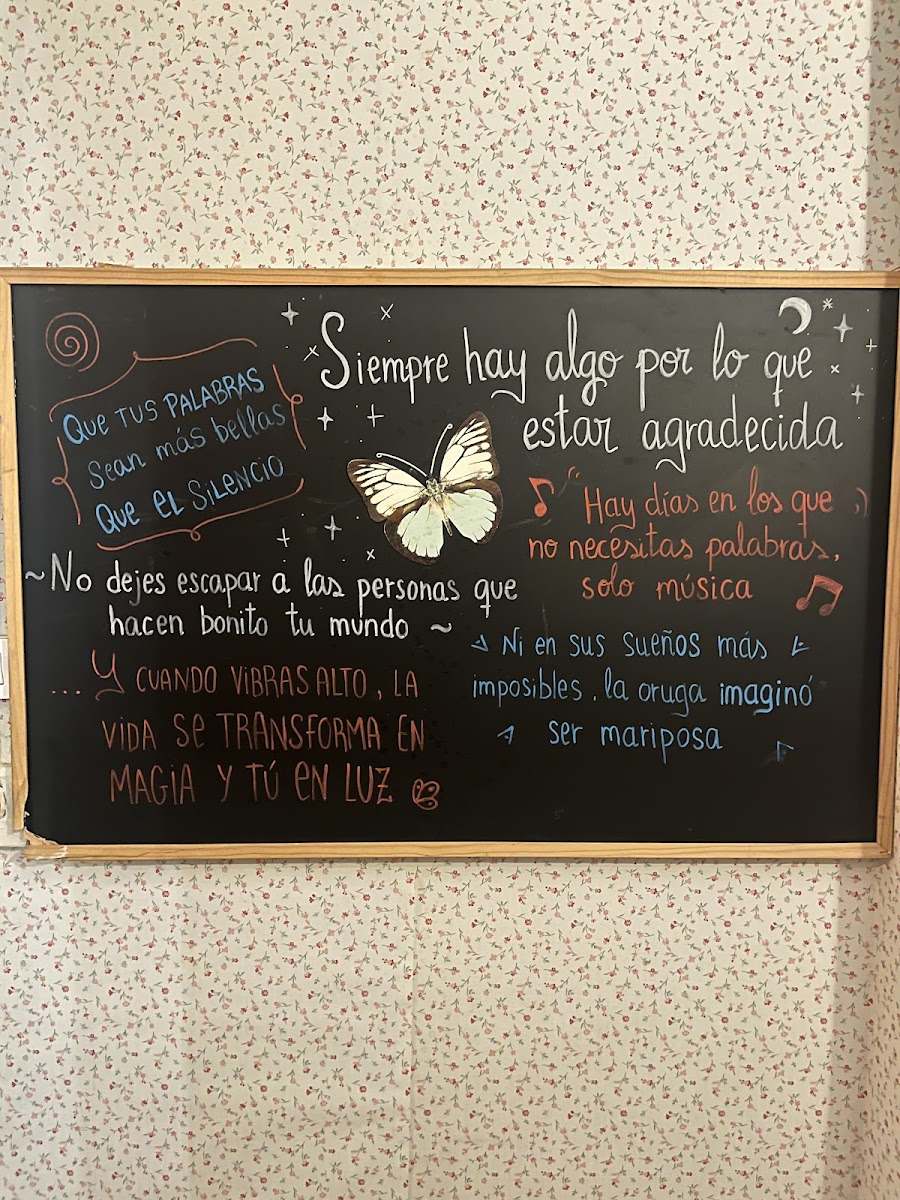 Que TUS PALABRAS
Sean más bellas
Que el SileNciO
Siempre hay algo por lo que
estar agradecida
Hay días en los que
no necesitas palabras,
solo música
~No dejes escapar a las personas que
hacen bonito tu mundo ~
Ni en sus sueños más
imposibles, la oruga imaginó
ser mariposa
... Y CUANDO ViBRAS ALTO, LA
ViDA Se TRANSfORMA EN
MAGiA Y TÚ eN LUZ